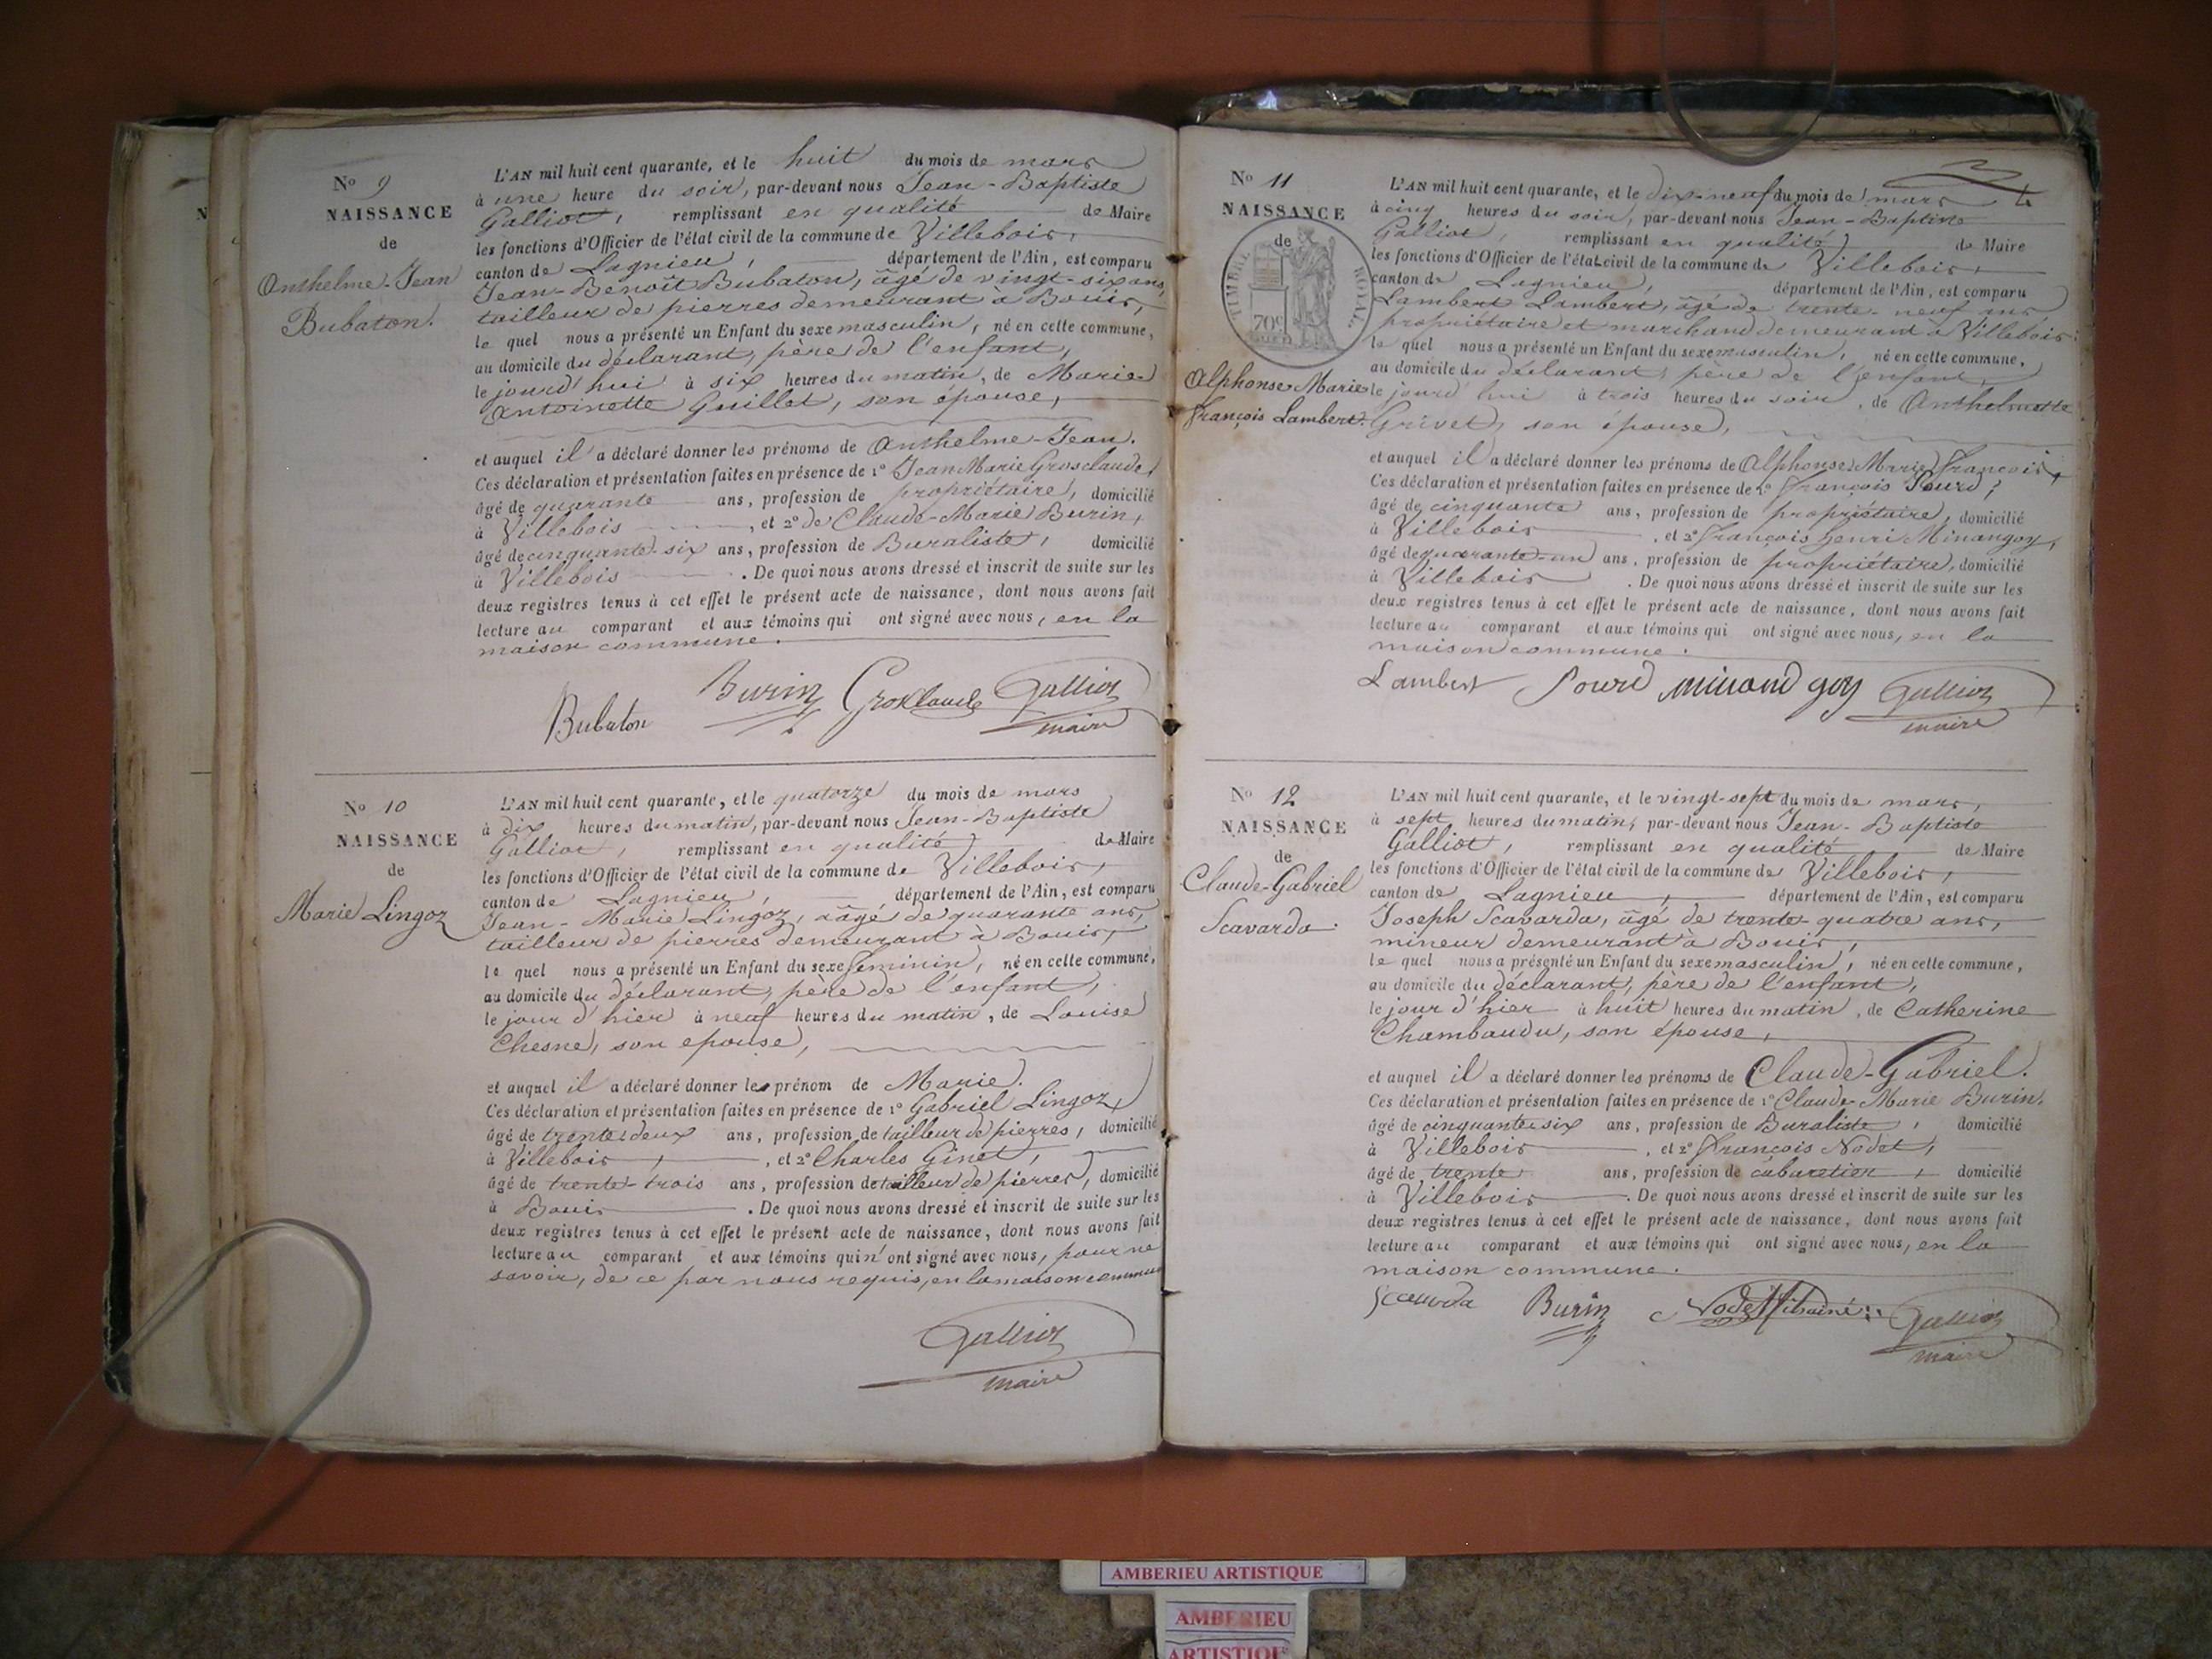 No 9
NAISSANCE
de
Anthelme-Jean
Bubaton.
L'AN mil huit cent quarante, et le huit du mois de mars
à une heure du soir, par-devant nous Jean-Baptiste
Galliot, remplissant en qualité de Maire
les fonctions d'Officier de l'état civil de la commune de Villebois,
canton de Lagnieu, département de l'Ain, est comparu
Jean-Benoît Bubaton, âgé de vingt-six ans,
tailleur de pierres demeurant à Bouis,
le quel nous a présenté un Enfant du sexe masculin, né en cette commune,
au domicile du déclarant, père de l'enfant,
le jourd'hui à six heures du matin, de Marie
Antoinette Guillet, son épouse,
et auquel il a déclaré donner les prénoms de Anthelme-Jean.
Ces déclaration et présentation faites en présence de 1º Jean Marie Grosclaude,
âgé de quarante ans, profession de propriétaire, domicilié
à Villebois, et 2º de Claude-Marie Burin,
âgé de cinquante-six ans, profession de Buraliste, domicilié
à Villebois. De quoi nous avons dressé et inscrit de suite sur les
deux registres tenus à cet effet le présent acte de naissance, dont nous avons fait
lecture au comparant et aux témoins qui ont signé avec nous, en la
maison commune.
Bubaton Burin Grosclaude Galliot
maire
No 10
NAISSANCE
de
Marie Lingoz
L'AN mil huit cent quarante, et le quatorze du mois de mars
à dix heures du matin, par-devant nous Jean-Baptiste
Galliot, remplissant en qualité de Maire
les fonctions d'Officier de l'état civil de la commune de Villebois,
canton de Lagnieu, département de l'Ain, est comparu
Jean-Marie Lingoz, âgé de quarante ans,
tailleur de pierres demeurant à Bouis,
le quel nous a présenté un Enfant du sexe féminin, né en cette commune,
au domicile du déclarant, père de l'enfant,
le jour d'hier à neuf heures du matin, de Louise
Chesne, son epouse,
et auquel il a déclaré donner les prénom de Marie.
Ces déclaration et présentation faites en présence de 1º Gabriel Lingoz,
âgé de trente-deux ans, profession de tailleur de pierres, domicilié
à Villebois, et 2º Charles Ginet,
âgé de trente-trois ans, profession de tailleur de pierres, domicilié
à Bouis. De quoi nous avons dressé et inscrit de suite sur les
deux registres tenus à cet effet le présent acte de naissance, dont nous avons fait
lecture au comparant et aux témoins qui n'ont signé avec nous, pour ne
savoir, de ce par nous requis, en la maison commune
Galliot
maire
No 11
NAISSANCE
de
TIMBRE ROYAL
70c
Alphonse Marie
François Lambert.
L'AN mil huit cent quarante, et le dix-neuf du mois de mars
à cinq heures du soir, par-devant nous Jean-Baptiste
Galliot, remplissant en qualité de Maire
les fonctions d'Officier de l'état civil de la commune de Villebois,
canton de Lagnieu, département de l'Ain, est comparu
Lambert Lambert, âgé de trente-neuf ans,
propriétaire et marchand demeurant à Villebois
le quel nous a présenté un Enfant du sexe masculin, né en cette commune,
au domicile du déclarant, père de l'enfant,
le jourd'hui à trois heures du soir, de Anthelmette
Grivet, son épouse,
et auquel il a déclaré donner les prénoms de Alphonse Marie François,
Ces déclaration et présentation faites en présence de 1º François Sourd,
âgé de cinquante ans, profession de propriétaire, domicilié
à Villebois, et 2º François Henri Minangoy,
âgé de quarante-un ans, profession de propriétaire, domicilié
à Villebois. De quoi nous avons dressé et inscrit de suite sur les
deux registres tenus à cet effet le présent acte de naissance, dont nous avons fait
lecture au comparant et aux témoins qui ont signé avec nous, en la
maison commune.
Lambert Sourd minangoy Galliot
maire
No 12
NAISSANCE
de
Claude-Gabriel
Scavarda
L'AN mil huit cent quarante, et le vingt-sept du mois de mars,
à sept heures du matin, par-devant nous Jean-Baptiste
Galliot, remplissant en qualité de Maire
les fonctions d'Officier de l'état civil de la commune de Villebois,
canton de Lagnieu, département de l'Ain, est comparu
Joseph Scavarda, âgé de trente-quatre ans,
mineur demeurant à Bouis,
le quel nous a présenté un Enfant du sexe masculin, né en cette commune,
au domicile du déclarant, père de l'enfant,
le jour d'hier à huit heures du matin, de Catherine
Chambaudu, son épouse,
et auquel il a déclaré donner les prénoms de Claude-Gabriel.
Ces déclaration et présentation faites en présence de 1º Claude-Marie Burin,
âgé de cinquante-six ans, profession de Buraliste, domicilié
à Villebois, et 2º François Nodet,
âgé de trente ans, profession de cabaretier, domicilié
à Villebois. De quoi nous avons dressé et inscrit de suite sur les
deux registres tenus à cet effet le présent acte de naissance, dont nous avons fait
lecture au comparant et aux témoins qui ont signé avec nous, en la
maison commune.
Scavarda Burin Galliot
maire
AMBERIEU ARTISTIQUE
AMBERIEU
ARTISTIQUE